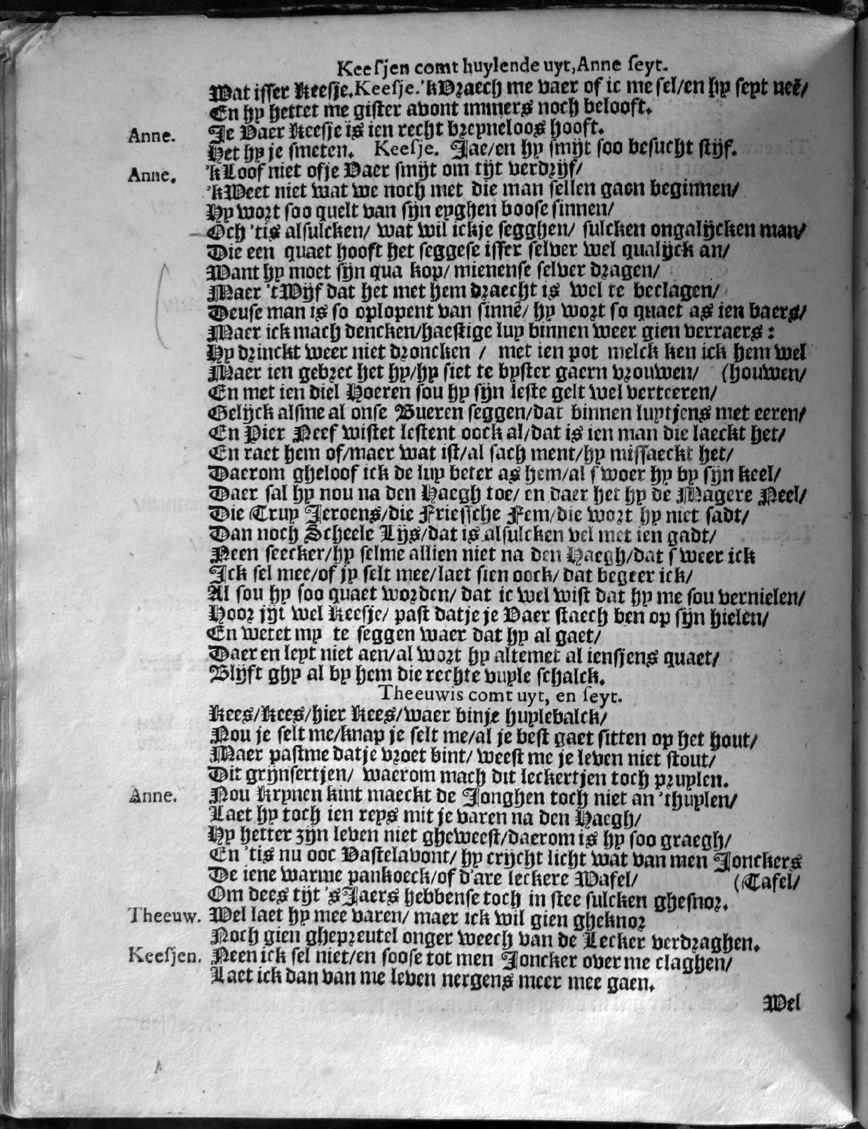 Keesjen comt huylende uyt, Anne seyt.
Wat isser Keesje. Keesje. 'kVraech me vaer of ic me sel/en hy seyt neẽ/
En hy hettet me gister avont immers noch belooft.
Anne. Je Vaer Keesje is ien recht breyneloos hooft.
Het hy je smeten. Keesje. Jae/en hy smijt soo besucht stijf.
Anne. 'kLoof niet ofje Vaer smijt om tijt verdrijf/
'kWeet niet wat we noch met die man sellen gaen beginnen/
Hy wort soo quelt van sijn eyghen boose sinnen/
Och 'tis alsulcken/ wat wil ickje segghen/ sulcken ongalijcken man/
Die een quaet hooft het seggese isser selver wel qualijck an/
Want hy moet sijn qua kop/ mienense selver dragen/
Maer 't Wijf dat het met hem draecht is wel te beclagen/
Deuse man is so oplopent van sinnẽ/ hy wort so quaet as ien baers/
Maer ick mach dencken/haestige luy binnen weer gien verraers:
Hy drinckt weer niet droncken / met ien pot melck ken ick hem wel
Maer ien gebrec het hy/hy siet te byster gaern vrouwen/ (houwen/
En met ien diel Hoeren sou hy sijn leste gelt wel verteeren/
Gelijck alsme al onse Bueren seggen/dat binnen luytjens met eeren/
En Pier Neef wistet lestent oock al/dat is ien man die laeckt het/
En raet hem of/maer wat ist/al sach ment/hy missaeckt het/
Daerom gheloof ick de luy beter as hem/al swoer hy by sijn keel/
Daer sal hy nou na den Haegh toe/ en daer het hy de Magere Neel/
Die Truy Jeroens/die Friessche Fem/die wort hy niet sadt/
Dan noch Scheele Lijs/dat is alsulcken vel met ien gadt/
Neen seecker/hy selme allien niet na den Haegh/dat sweer ick
Ick sel mee/of jy selt mee/laet sien oock/ dat begeer ick/
Al sou hy soo quaet worden/ dat ic wel wist dat hy me sou vernielen/
Hoor jijt wel Keesje/ past datje je Vaer staech ben op sijn hielen/
En wetet my te seggen waer dat hy al gaet/
Daer en leyt niet aen/al wort hy altemet al iensjens quaet/
Blijft ghy al by hem die rechte vuyle schalck.
Theeuwis comt uyt, en seyt.
Kees/Kees/hier Kees/waer binje huylebalck/
Nou je selt me/knap je selt me/al je best gaet sitten op het hout/
Maer pastme datje vroet bint/ weest me je leven niet stout/
Dit grijnsertjen/ waerom mach dit leckertjen toch pruylen.
Anne. Nou Krynen kint maeckt de Jonghen toch niet an 'thuylen/
Laet hy toch ien reys mit je varen na den Haegh/
Hy hetter zijn leven niet gheweest/daerom is hy soo graegh/
En 'tis nu ooc Vastelavont/ hy crijcht licht wat van men Jonckers
De iene warme pankoeck/of d'are leckere Wafel/ (Tafel/
Om dees tijt 'sJaers hebbense toch in stee sulcken ghesnor.
Theeuw. Wel laet hy mee varen/ maer ick wil gien gheknor
Noch gien ghepreutel onger weech van de Lecker verdraghen.
Keesjen. Neen ick sel niet/en soose tot men Joncker over me claghen/
Laet ick dan van me leven nergens meer mee gaen.
Wel